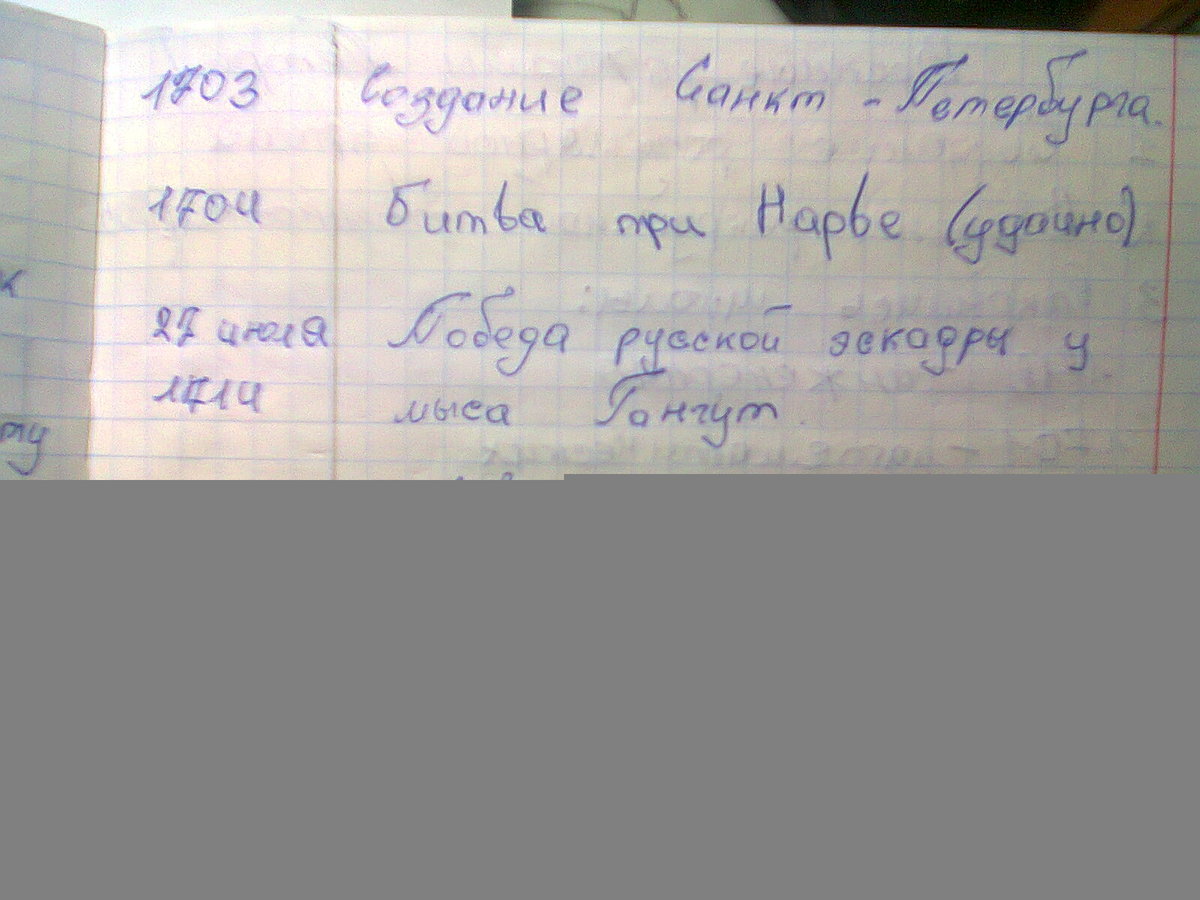 1703 Создание Санкт-Петербурга.
1704 Битва при Нарве (удачно)
27 июля Победа русской эскадры у
1714 мыса Гангут.